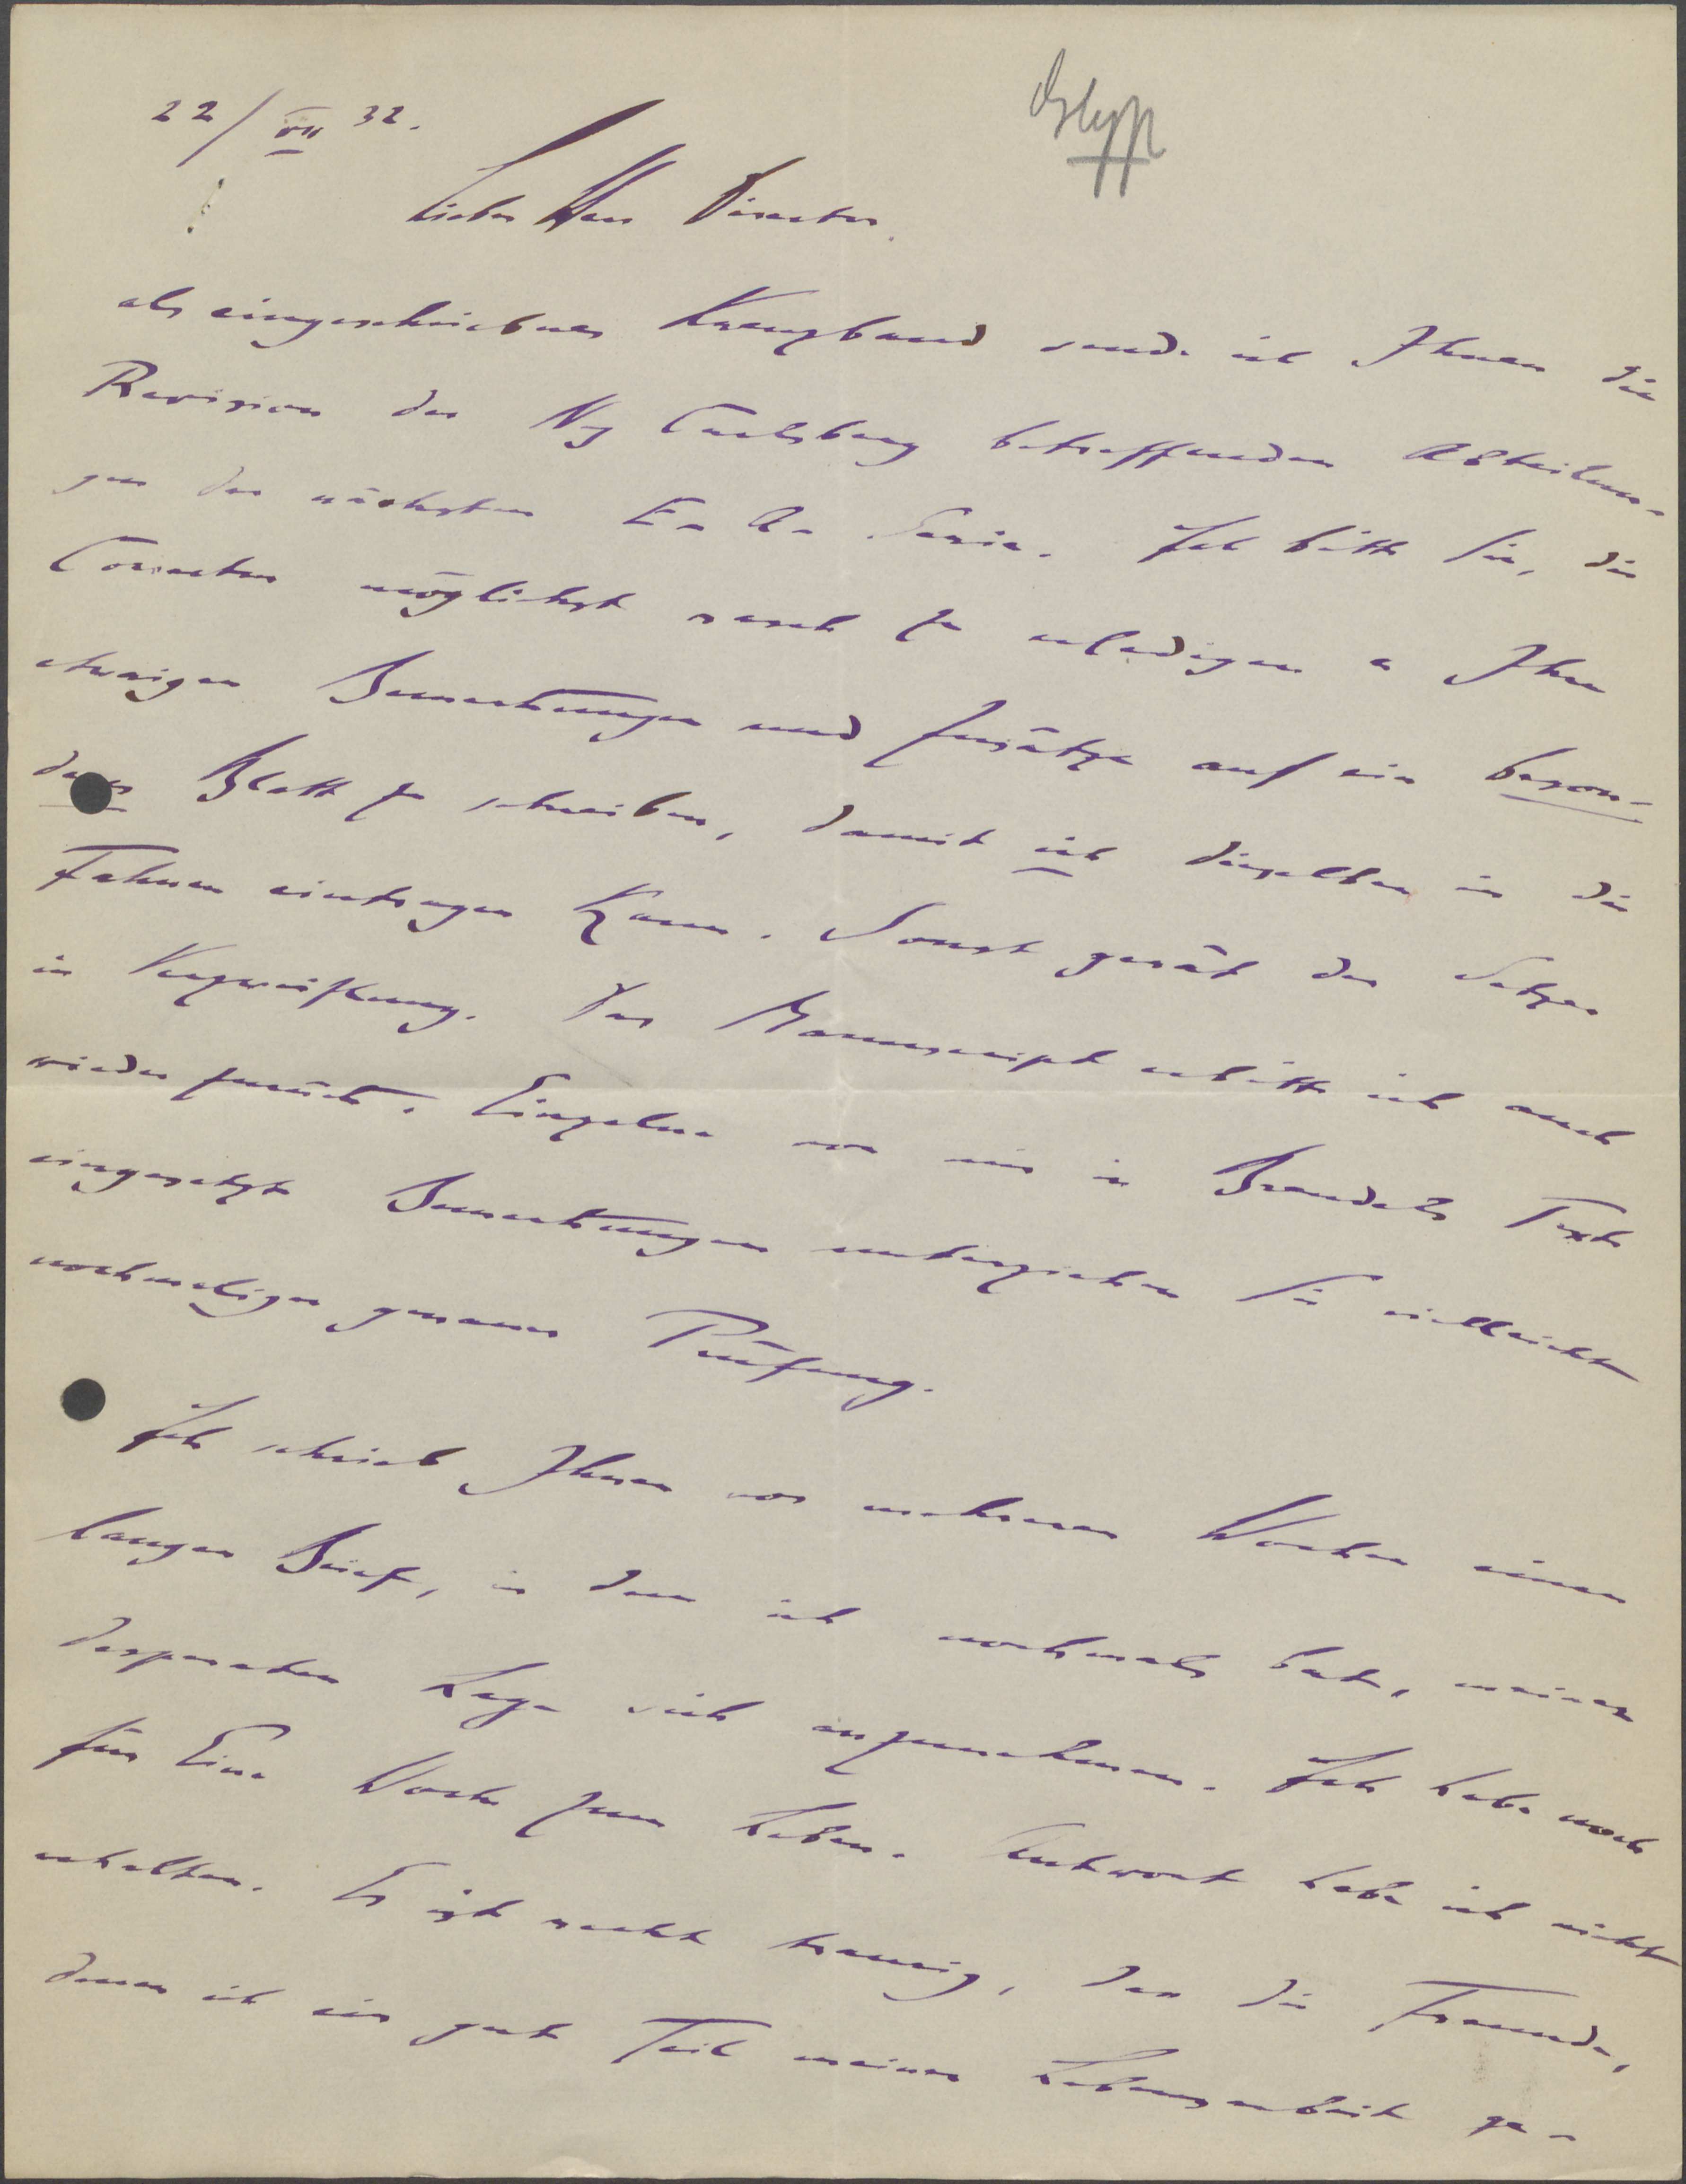 22/VII 32.
Glypt
Lieber Herr Director.
als eingeschriebenes Kreuzband sende ich Ihnen die
Revision der Ny Carlsberg betreffenden Abteilun-
gen der nächsten E. A. Serie. Ich bitte Sie, die
Correctur möglichst rasch zu erledigen u Ihre
etwaigen Bemerkungen und Zusätze auf ein beson-
deres Blatt zu schreiben, damit ich dieselben in die
Fahnen eintragen kann. Sonst gerät der Setzer
in Verzweiflung. Das Manuscript erbitte ich auch
wieder zurück. Einzelne von mir in Brendels Text
eingesetzte Bemerkungen unterziehen Sie vielleicht
nochmaliger genauer Prüfung.
Ich schrieb Ihnen vor mehreren Wochen einen
langen Brief, in dem ich nochmals bat, meiner
desperaten Lage sich anzunehmen. Ich habe noch
für Eine Woche zum Leben. Antwort habe ich nicht
erhalten. Es ist recht traurig, das die Freunde,
denen ich ein gut Teil meiner Lebensarbeit ge-